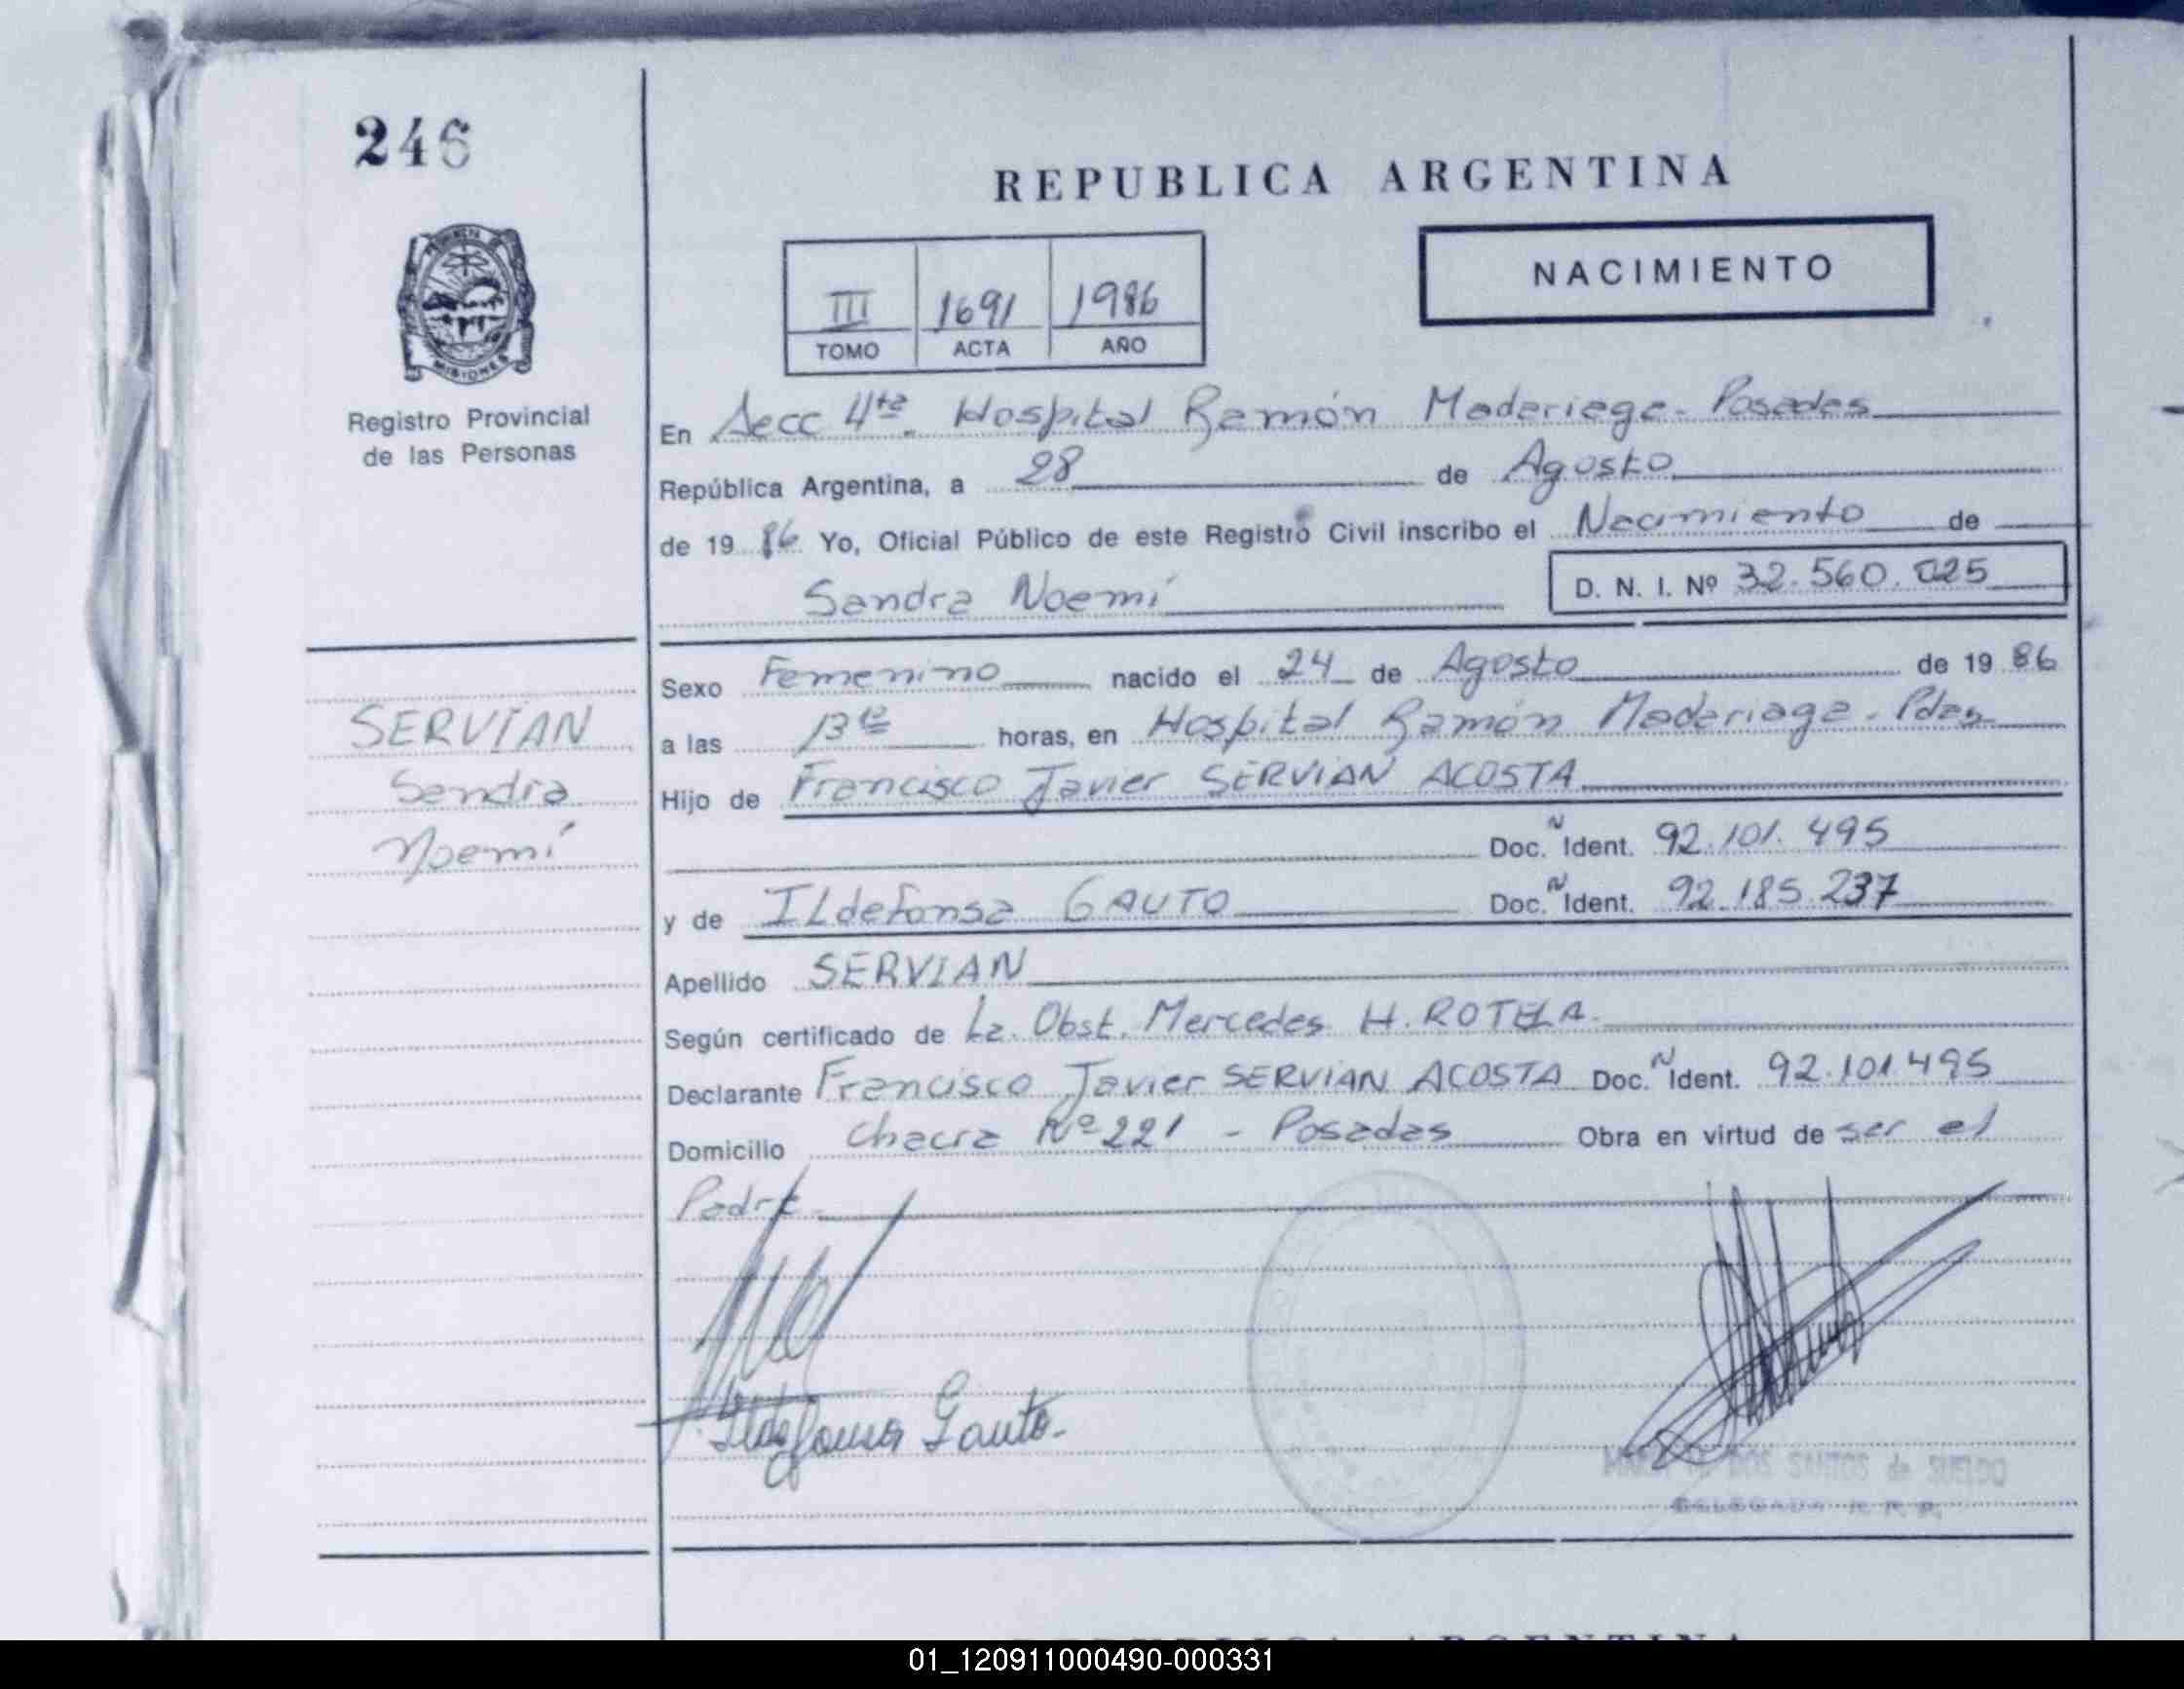 246
REPUBLICA ARGENTINA
NACIMIENTO
III 1691 1986
TOMO ACTA AÑO
PROVINCIA DE
MISIONES
Registro Provincial
de las Personas
En Secc 4ta. Hospital Ramón Madariaga - Posadas
República Argentina, a 28 de Agosto
de 19 86 Yo, Oficial Público de este Registro Civil inscribo el Nacimiento de
Sandra Noemí D. N. I. Nº 32.560.025
Sexo Femenino nacido el 24 de Agosto de 19 86
a las 13 horas, en Hospital Ramón Madariaga - Pdas
Hijo de Francisco Javier SERVIAN ACOSTA
Doc. Ident. 92.101.495
y de ILdefonsa GAUTO Doc. Ident. 92.185.237
Apellido SERVIAN
Según certificado de La Obst. Mercedes H. ROTELA.
Declarante Francisco Javier SERVIAN ACOSTA Doc. Ident. 92.101495
Domicilio Chacra Nº 221 - Posadas Obra en virtud de ser el
Padre
SERVIAN
Sandra
Noemí
Ildefonsa Gauto.
DOS SANTOS de SUELDO
DELEGADA R. P. P.
01_120911000490-000331